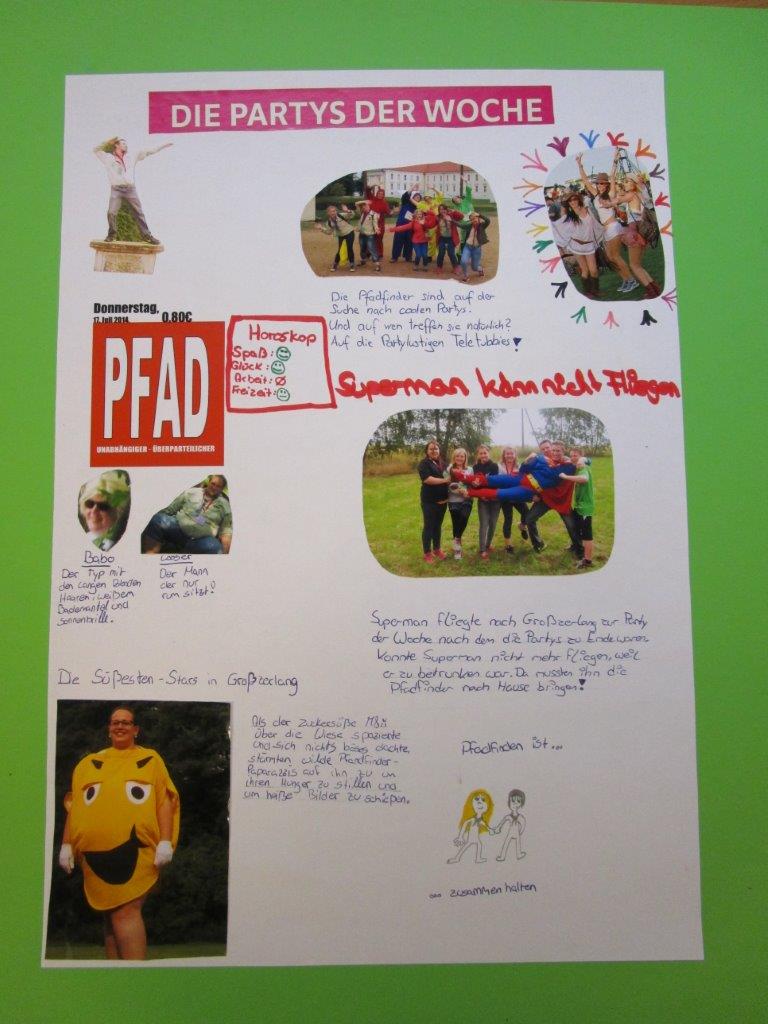 DIE PARTYS DER WOCHE
Die Pfadfinder sind auf der
Suche nach coolen Partys.
Und auf wen treffen sie natürlich?
Auf die Partylustigen Teletubbies!
Donnerstag,
17. Juli 2014 0,80€
PFAD
UNABHÄNGIGER - ÜBERPARTEILICHER
Horoskop
Spaß:
Glück:
Arbeit:
Freizeit:
Superman kann nicht Fliegen
Babo
Der Typ mit
den langen Blonden
Haaren, weißem
Bademantel und
Sonnenbrille.
Looser
Der Mann
der nur
rum sitzt!
Superman fliegte nach Großzerlang zur Party
der Woche nach dem die Partys zu Ende waren,
konnte Superman nicht mehr fliegen, weil
er zu betrunken war. Da mussten ihn die
Pfadfinder nach Hause bringen!
Die Süßesten-Stars in Großzerlang
Als der Zuckersüße
über die Wiese spazierte
und sich nichts böses dachte,
stürmten wilde Pfandfinder-
Paparazzis auf ihn zu um
ihren Hunger zu stillen und
um heiße Bilder zu schießen.
Pfadfinden ist...
... zusammenhalten